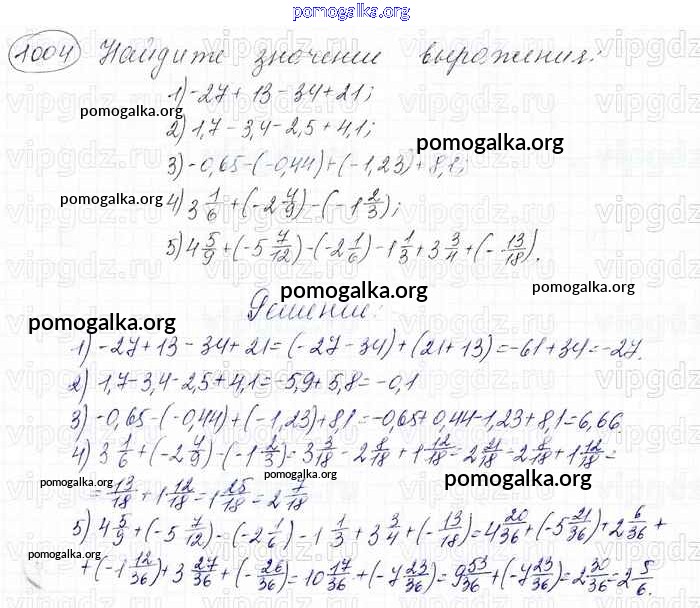 pomogalka.org
1004 Найдите значение выражения:
1) -27 + 13 - 34 + 21;
pomogalka.org
2) 1,7 - 3,4 - 2,5 + 4,1;
pomogalka.org
3) -0,65 - (-0,44) + (-1,23) + 8,1;
pomogalka.org 4) 3 1/6 + (-2 4/9) - (-1 2/3);
5) 4 5/9 + (-5 7/12) - (-2 1/6) - 1 1/3 + 3 3/4 + (-13/18).
pomogalka.org pomogalka.org
Решение:
pomogalka.org
1) -27 + 13 - 34 + 21 = (-27 - 34) + (21 + 13) = -61 + 34 = -27.
2) 1,7 - 3,4 - 2,5 + 4,1 = -5,9 + 5,8 = -0,1
pomogalka.org
3) -0,65 - (-0,44) + (-1,23) + 8,1 = -0,65 + 0,44 - 1,23 + 8,1 = 6,66.
4) 3 1/6 + (-2 4/9) - (-1 2/3) = 3 3/18 - 2 8/18 + 1 12/18 = 2 21/18 - 2 8/18 + 1 12/18 =
pomogalka.org pomogalka.org
= 13/18 + 1 12/18 = 1 25/18 = 2 7/18
5) 4 5/9 + (-5 7/12) - (-2 1/6) - 1 1/3 + 3 3/4 + (-13/18) = 4 20/36 + (-5 21/36) + 2 6/36 +
pomogalka.org pomogalka.org
+ (-1 12/36) + 3 27/36 + (-26/36) = 10 17/36 + (-7 23/36) = 9 53/36 + (-7 23/36) = 2 30/36 = 2 5/6.